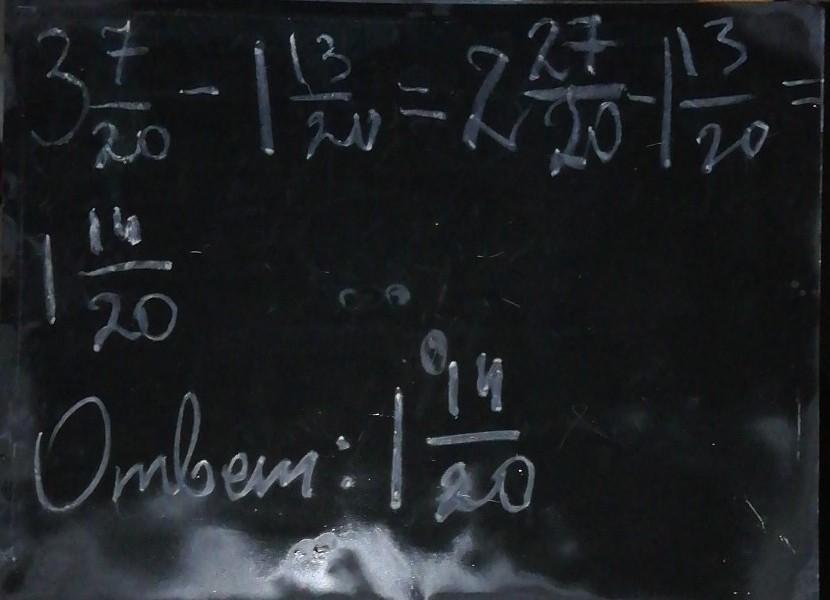 3 7/20 - 1 13/20 = 2 27/20 - 1 13/20 =
1 14/20
Ответ: 1 14/20